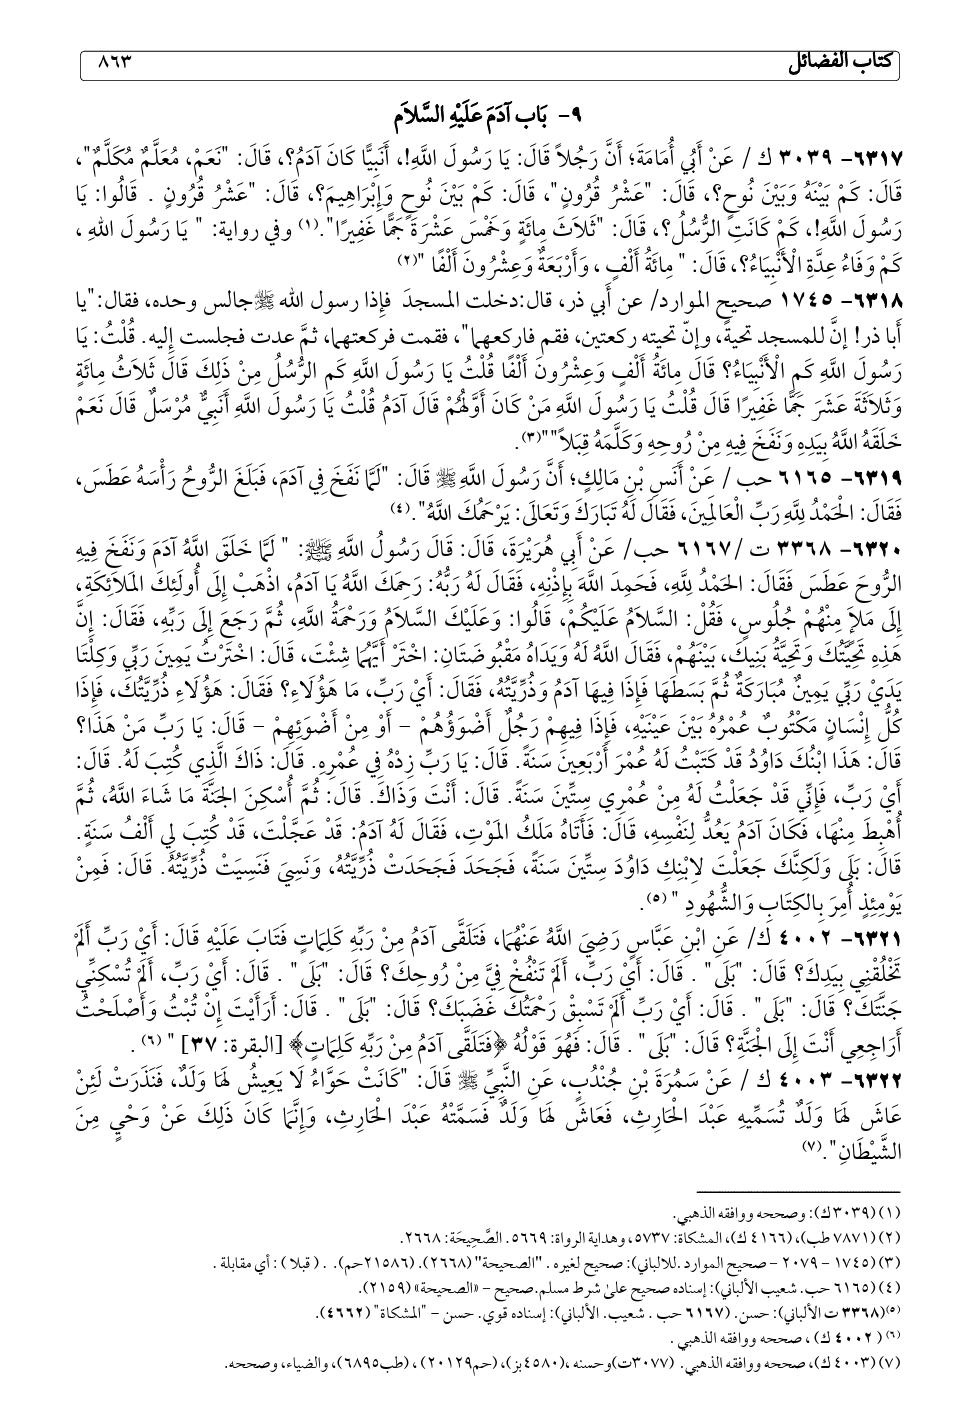 كتاب الفضائل ٨٦٣
٩- بَاب آدَمَ عَلَيْهِ السَّلاَم
٦٣١٧- ٣٠٣٩ ك / عَنْ أَبُي أُمَامَةَ؛ أَنَّ رَجُلاً قَالَ: يَا رَسُولَ اللَّهِ!، أَنَبِيًّا كَانَ آدَمُ؟، قَالَ: "نَعَمْ، مُعَلَّمٌ مُكَلَّمٌ"،
قَالَ: كَمْ بَيْنَهُ وَبَيْنَ نُوحٍ؟، قَالَ: "عَشْرُ قُرُونٍ"، قَالَ: كَمْ بَيْنَ نُوحٍ وَإِبْرَاهِيمَ؟، قَالَ: "عَشْرُ قُرُونٍ . قَالُوا: يَا
رَسُولَ اللَّهِ!، كَمْ كَانَتِ الرُّسُلُ؟، قَالَ: "ثَلَاثَ مِائَةٍ وَخَمْسَ عَشْرَةَ جَمًّا غَفِيرًا".(١) وفي رواية: " يَا رَسُولَ اللهِ ،
كَمْ وَفَاءُ عِدَّةِ الْأَنْبِيَاءُ؟، قَالَ: " مِائَةُ أَلْفٍ ، وَأَرْبَعَةٌ وَعِشْرُونَ أَلْفًا "(٢)
٦٣١٨- ١٧٤٥ صحيح الموارد/ عن أَبي ذر، قال:دخلت المسجدَ فإذا رسول الله ﷺجالس وحده، فقال:"يا
أَبا ذر! إنَّ للمسجد تحيةً، وإنّ تحيته ركعتين، فقم فاركعهما"، فقمت فركعتهما، ثمَّ عدت فجلست إليه. قُلْتُ: يَا
رَسُولَ اللَّهِ كَمِ الْأَنْبِيَاءُ؟ قَالَ مِائَةُ أَلْفٍ وَعِشْرُونَ أَلْفًا قُلْتُ يَا رَسُولَ اللَّهِ كَمِ الرُّسُلُ مِنْ ذَلِكَ قَالَ ثَلَاثُ مِائَةٍ
وَثَلَاثَةَ عَشَرَ جَمًّا غَفِيرًا قَالَ قُلْتُ يَا رَسُولَ اللَّهِ مَنْ كَانَ أَوَّلَهُمْ قَالَ آدَمُ قُلْتُ يَا رَسُولَ اللَّهِ أَنَبِيٌّ مُرْسَلٌ قَالَ نَعَمْ
خَلَقَهُ اللَّهُ بِيَدِهِ وَنَفَخَ فِيهِ مِنْ رُوحِهِ وَكَلَّمَهُ قِبَلاً""(٣).
٦٣١٩- ٦١٦٥ حب / عَنْ أَنَسِ بْنِ مَالِكٍ؛ أَنَّ رَسُولَ اللَّهِ ﷺ قَالَ: "لَمَّا نَفَخَ فِي آدَمَ، فَبَلَغَ الرُّوحُ رَأْسَهُ عَطَسَ،
فَقَالَ: الْحَمْدُ لِلَّهِ رَبِّ الْعَالَمِينَ، فَقَالَ لَهُ تَبَارَكَ وَتَعَالَى: يَرْحَمُكَ اللَّهُ".(٤)
٦٣٢٠- ٣٣٦٨ ت /٦١٦٧ حب/ عَنْ أَبِي هُرَيْرَةَ، قَالَ: قَالَ رَسُولُ اللَّهِ ﷺ: " لَمَّا خَلَقَ اللَّهُ آدَمَ وَنَفَخَ فِيهِ
الرُّوحَ عَطَسَ فَقَالَ: الحَمْدُ لِلَّهِ، فَحَمِدَ اللَّهَ بِإِذْنِهِ، فَقَالَ لَهُ رَبُّهُ: رَحِمَكَ اللَّهُ يَا آدَمُ، اذْهَبْ إِلَى أُولَئِكَ المَلَائِكَةِ،
إِلَى مَلَإٍ مِنْهُمْ جُلُوسٍ، فَقُلْ: السَّلَامُ عَلَيْكُمْ، قَالُوا: وَعَلَيْكَ السَّلَامُ وَرَحْمَةُ اللَّهِ، ثُمَّ رَجَعَ إِلَى رَبِّهِ، فَقَالَ: إِنَّ
هَذِهِ تَحِيَّتُكَ وَتَحِيَّةُ بَنِيكَ، بَيْنَهُمْ، فَقَالَ اللَّهُ لَهُ وَيَدَاهُ مَقْبُوضَتَانِ: اخْتَرْ أَيَّهُمَا شِئْتَ، قَالَ: اخْتَرْتُ يَمِينَ رَبِّي وَكِلْتَا
يَدَيْ رَبِّي يَمِينٌ مُبَارَكَةٌ ثُمَّ بَسَطَهَا فَإِذَا فِيهَا آدَمُ وَذُرِّيَّتُهُ، فَقَالَ: أَيْ رَبِّ، مَا هَؤُلَاءِ؟ فَقَالَ: هَؤُلَاءِ ذُرِّيَّتُكَ، فَإِذَا
كُلُّ إِنْسَانٍ مَكْتُوبٌ عُمْرُهُ بَيْنَ عَيْنَيْهِ، فَإِذَا فِيهِمْ رَجُلٌ أَضْوَؤُهُمْ – أَوْ مِنْ أَضْوَئِهِمْ – قَالَ: يَا رَبِّ مَنْ هَذَا؟
قَالَ: هَذَا ابْنُكَ دَاوُدُ قَدْ كَتَبْتُ لَهُ عُمْرَ أَرْبَعِينَ سَنَةً. قَالَ: يَا رَبِّ زِدْهُ فِي عُمْرِهِ. قَالَ: ذَاكَ الَّذِي كُتِبَ لَهُ. قَالَ:
أَيْ رَبِّ، فَإِنِّي قَدْ جَعَلْتُ لَهُ مِنْ عُمْرِي سِتِّينَ سَنَةً. قَالَ: أَنْتَ وَذَاكَ. قَالَ: ثُمَّ أُسْكِنَ الجَنَّةَ مَا شَاءَ اللَّهُ، ثُمَّ
أُهْبِطَ مِنْهَا، فَكَانَ آدَمُ يَعُدُّ لِنَفْسِهِ، قَالَ: فَأَتَاهُ مَلَكُ المَوْتِ، فَقَالَ لَهُ آدَمُ: قَدْ عَجَّلْتَ، قَدْ كُتِبَ لِي أَلْفُ سَنَةٍ.
قَالَ: بَلَى وَلَكِنَّكَ جَعَلْتَ لِابْنِكِ دَاوُدَ سِتِّينَ سَنَةً، فَجَحَدَ فَجَحَدَتْ ذُرِّيَّتُهُ، وَنَسِيَ فَنَسِيَتْ ذُرِّيَّتُهُ. قَالَ: فَمِنْ
يَوْمِئِذٍ أُمِرَ بِالكِتَابِ وَالشُّهُودِ " (٥).
٦٣٢١- ٤٠٠٢ ك/ عَنِ ابْنِ عَبَّاسٍ رَضِيَ اللَّهُ عَنْهُمَا، فَتَلَقَّى آدَمُ مِنْ رَبِّهِ كَلِمَاتٍ فَتَابَ عَلَيْهِ قَالَ: أَيْ رَبِّ أَلَمْ
تَخْلُقْنِي بِيَدِكَ؟ قَالَ: "بَلَى" . قَالَ: أَيْ رَبِّ، أَلَمْ تَنْفُخْ فِيَّ مِنْ رُوحِكَ؟ قَالَ: "بَلَى" . قَالَ: أَيْ رَبِّ، أَلَمْ تُسْكِنِّي
جَنَّتَكَ؟ قَالَ: "بَلَى" . قَالَ: أَيْ رَبِّ أَلَمْ تَسْبِقْ رَحْمَتُكَ غَضَبَكَ؟ قَالَ: "بَلَى" . قَالَ: أَرَأَيْتَ إِنْ تُبْتُ وَأَصْلَحْتُ
أَرَاجِعِي أَنْتَ إِلَى الْجَنَّةِ؟ قَالَ: "بَلَى" . قَالَ: فَهُوَ قَوْلُهُ ﴿فَتَلَقَّى آدَمُ مِنْ رَبِّهِ كَلِمَاتٍ﴾ [البقرة: ٣٧] " (٦) .
٦٣٢٢- ٤٠٠٣ ك / عَنْ سَمُرَةَ بْنِ جُنْدُبٍ، عَنِ النَّبِيِّ ﷺ قَالَ: "كَانَتْ حَوَّاءُ لَا يَعِيشُ لَهَا وَلَدٌ، فَنَذَرَتْ لَئِنْ
عَاشَ لَهَا وَلَدٌ تُسَمِّيهِ عَبْدَ الْحَارِثِ، فَعَاشَ لَهَا وَلَدٌ فَسَمَّتْهُ عَبْدَ الْحَارِثِ، وَإِنَّمَا كَانَ ذَلِكَ عَنْ وَحْيٍ مِنَ
الشَّيْطَانِ".(٧)
(١) (٣٠٣٩ك): وصححه ووافقه الذهبي.
(٢) (٧٨٧١ طب)، (٤١٦٦ ك)، المشكاة: ٥٧٣٧، وهداية الرواة: ٥٦٦٩. الصَّحِيحَة: ٢٦٦٨.
(٣) (١٧٤٥ – ٢٠٧٩ – صحيح الموارد.للالباني): صحيح لغيره . "الصحيحة" (٢٦٦٨). (٢١٥٨٦حم). . ( قبلا ) : أي مقابلة .
(٤) (٦١٦٥ حب. شعيب الألباني): إسناده صحيح علىٰ شرط مسلم.صحيح – «الصحيحة» (٢١٥٩).
(٥)(٣٣٦٨ ت الألباني): حسن. (٦١٦٧ حب . شعيب. الألباني): إسناده قوي. حسن – "المشكاة" (٤٦٦٢).
(٦) ( ٤٠٠٢ ك) ، صححه ووافقه الذهبي .
(٧) (٤٠٠٣ ك)، صححه ووافقه الذهبي. (٣٠٧٧ت)وحسنه ،(٤٥٨٠بز)، (حم٢٠١٢٩) ، (طب٦٨٩٥)، والضياء، وصححه.